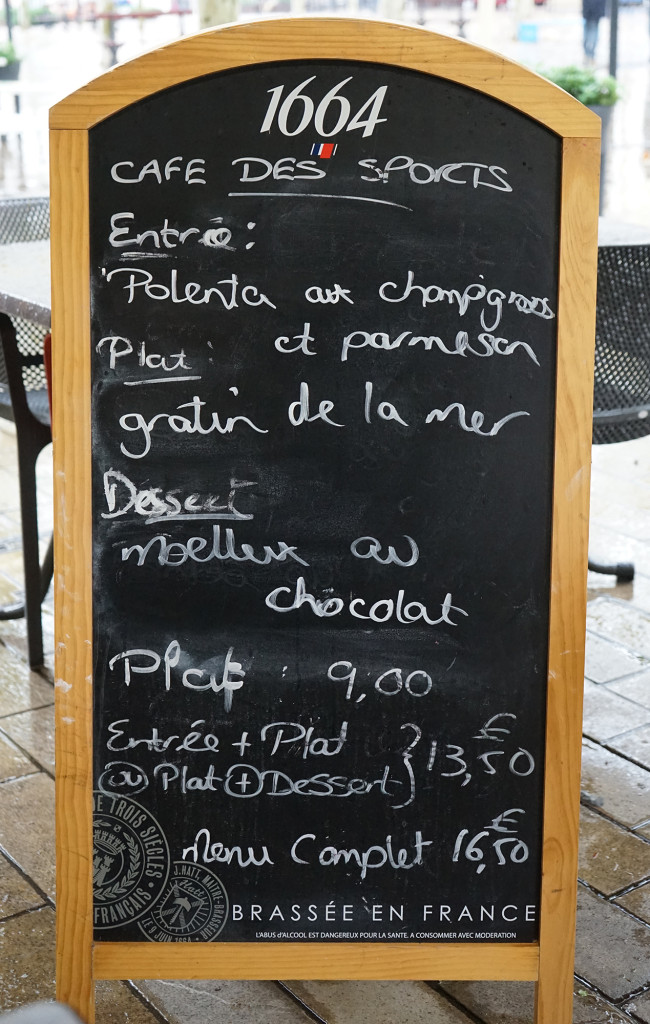 1664
CAFE DES SPORTS
Entrée:
Polenta aux champignons
et parmesan
Plat:
gratin de la mer
Dessert
moelleux au
chocolat
Plat : 9,00
Entrée + Plat
ou Plat + Dessert } 13,50 €
Menu Complet 16,50 €
DE TROIS SIÈCLES
FRANÇAIS
J.HATT, MAITRE-BRASSEUR
Hatt
LE 9 JUIN 1664
BRASSÉE EN FRANCE
L'ABUS d'ALCOOL EST DANGEREUX POUR LA SANTE. A CONSOMMER AVEC MODERATION